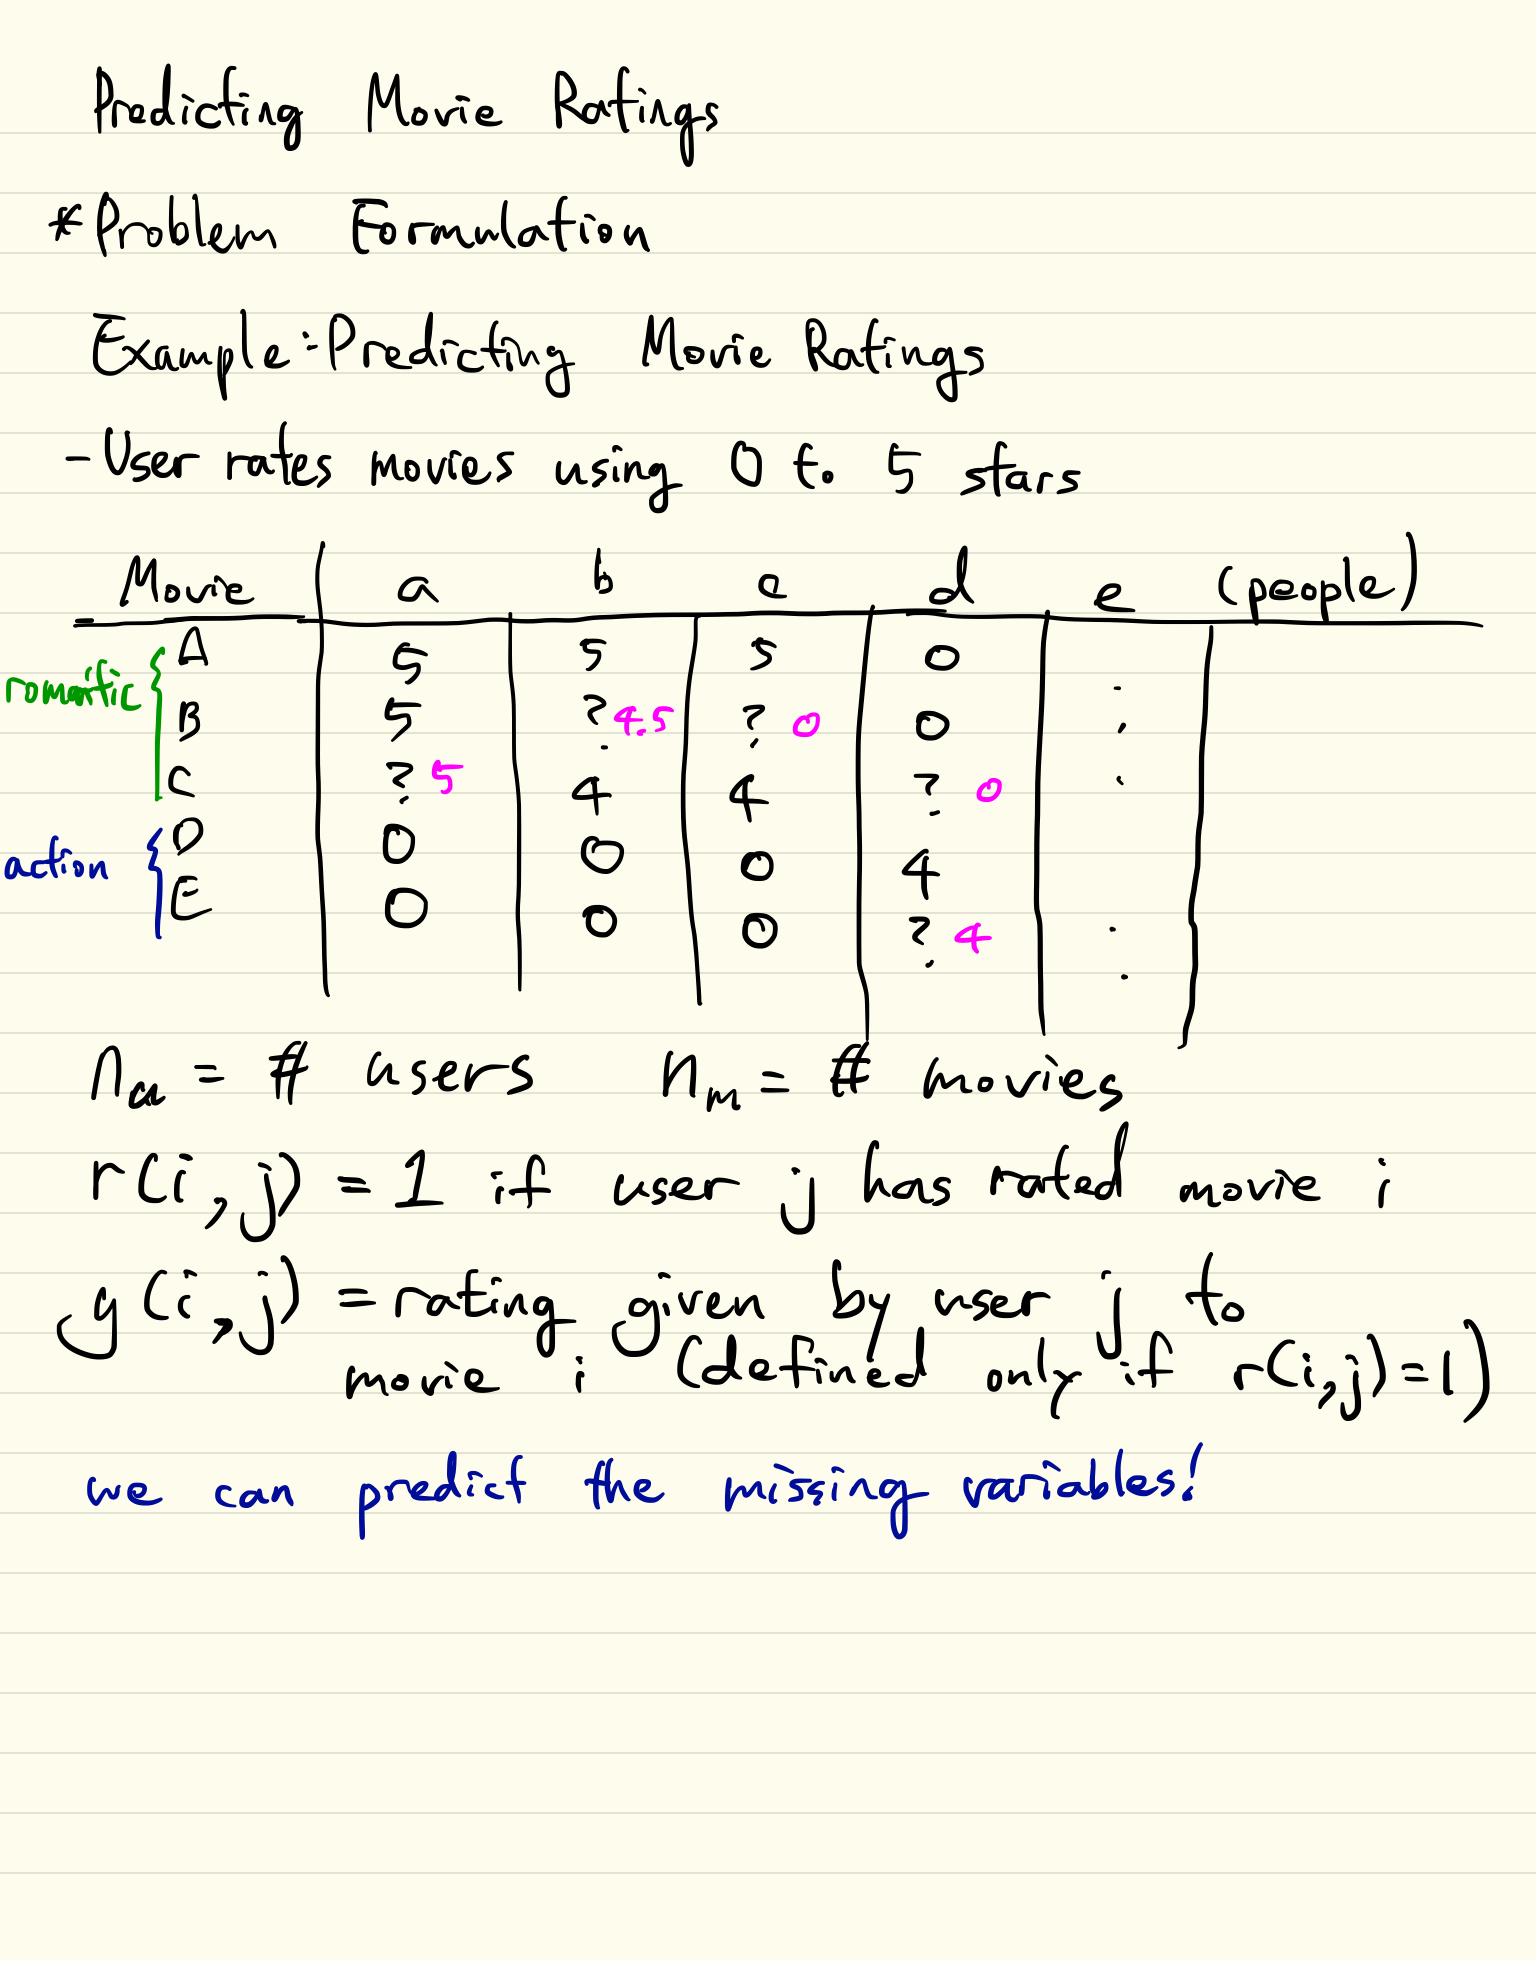 Predicting Movie Ratings
*Problem Formulation
Example:Predicting Movie Ratings
-User rates movies using 0 to 5 stars
Movie a b c d e (people)
romantic A 5 5 5 0
B 5 ? 4.5 ? 0 0
C ? 5 4 4 ? 0
action D 0 0 0 4
E 0 0 0 ? 4
nu = # users nm = # movies
r(i,j) = 1 if user j has rated movie i
y(i,j) = rating given by user j to
movie i (defined only if r(i,j)=1)
we can predict the missing variables!